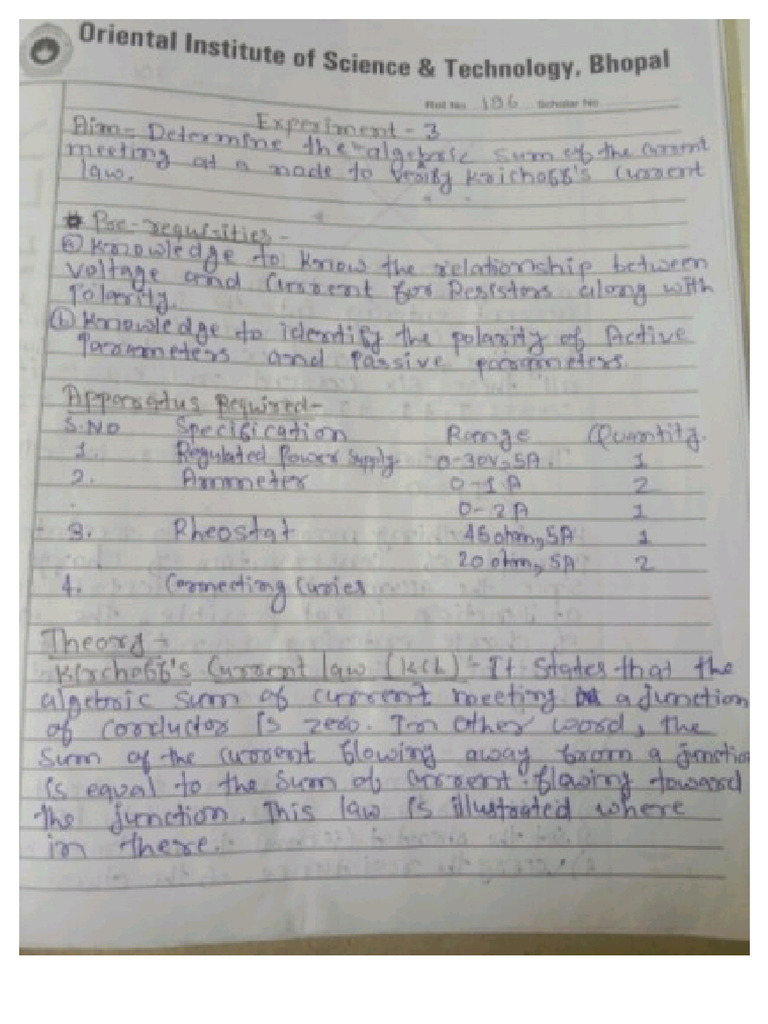 Oriental Institute of Science & Technology, Bhopal
Roll No. 196 Scholar No.
Experiment - 3
Aim = Determine the algebric sum of the current
meeting at a node to verify Krichoff's Current
law.
* Pre-requisities -
(a) Knowledge to know the relationship between
voltage and Current for Resistors along with
Polarity.
(b) Knowledge to identify the polarity of Active
Parameters and Passive parameters.
Apparatus Required -
S.No Specification Range Quantity.
1. Regulated Power Supply 0-30V, 5A. 1
2. Ammeter 0-1A 2
0-2A 1
3. Rheostat 45 ohm, 5A 1
20 ohm, 5A 2
4. Connecting
Theory -
Kirchoff's Current law (KCL) - It States that the
algebric sum of current meeting a junction
of conductor is zero. In other word, the
Sum of the current flowing away from a junction
is equal to the sum of current flowing toward
the junction. This law is illustrated where
in there.